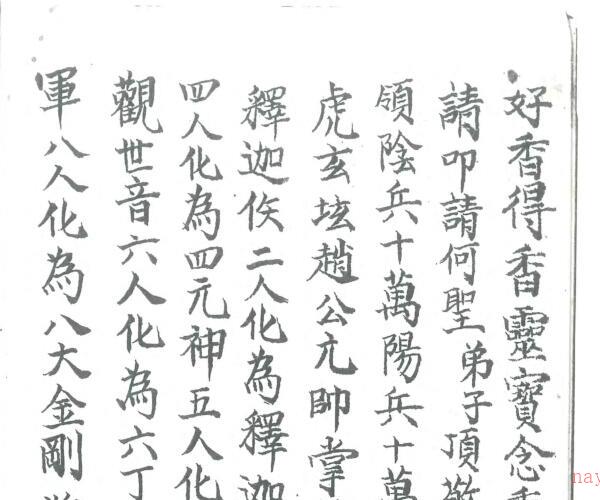 好香得香靈寶念
請叩請何聖弟子頂敬
領陰兵十萬陽兵十萬
虎玄坛趙公元帥掌
釋迦佛二人化為釋迦
四人化為四元神五人化
觀世音六人化為六丁
軍八人化為八大金剛
nay